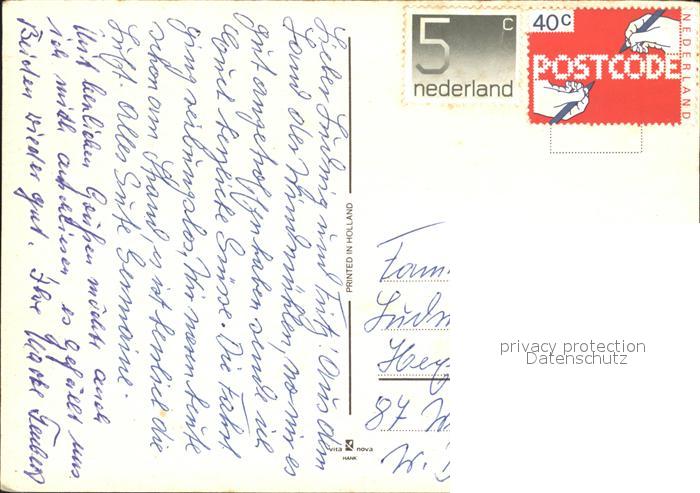 5 c
nederland
40c
POSTCODE
NEDERLAND
Lieber Ludwig und Fritz! Aus dem
Land der Windmühlen, wo wir es
gut angetroffen haben sende ich
Euch herzliche Grüsse. Die Fahrt
ging reibungslos, Wir waren heute
schon am Strand, es ist herrlich die
Luft. Alles Gute Germaine.
Mit herzlichen Grüßen möchte auch
ich mich anschließen es gefällt uns
Beiden wieder gut. Ihre
PRINTED IN HOLLAND
vita nova
HANK
Fam.
Ludw
Hey
87 W
privacy protection
Datenschutz